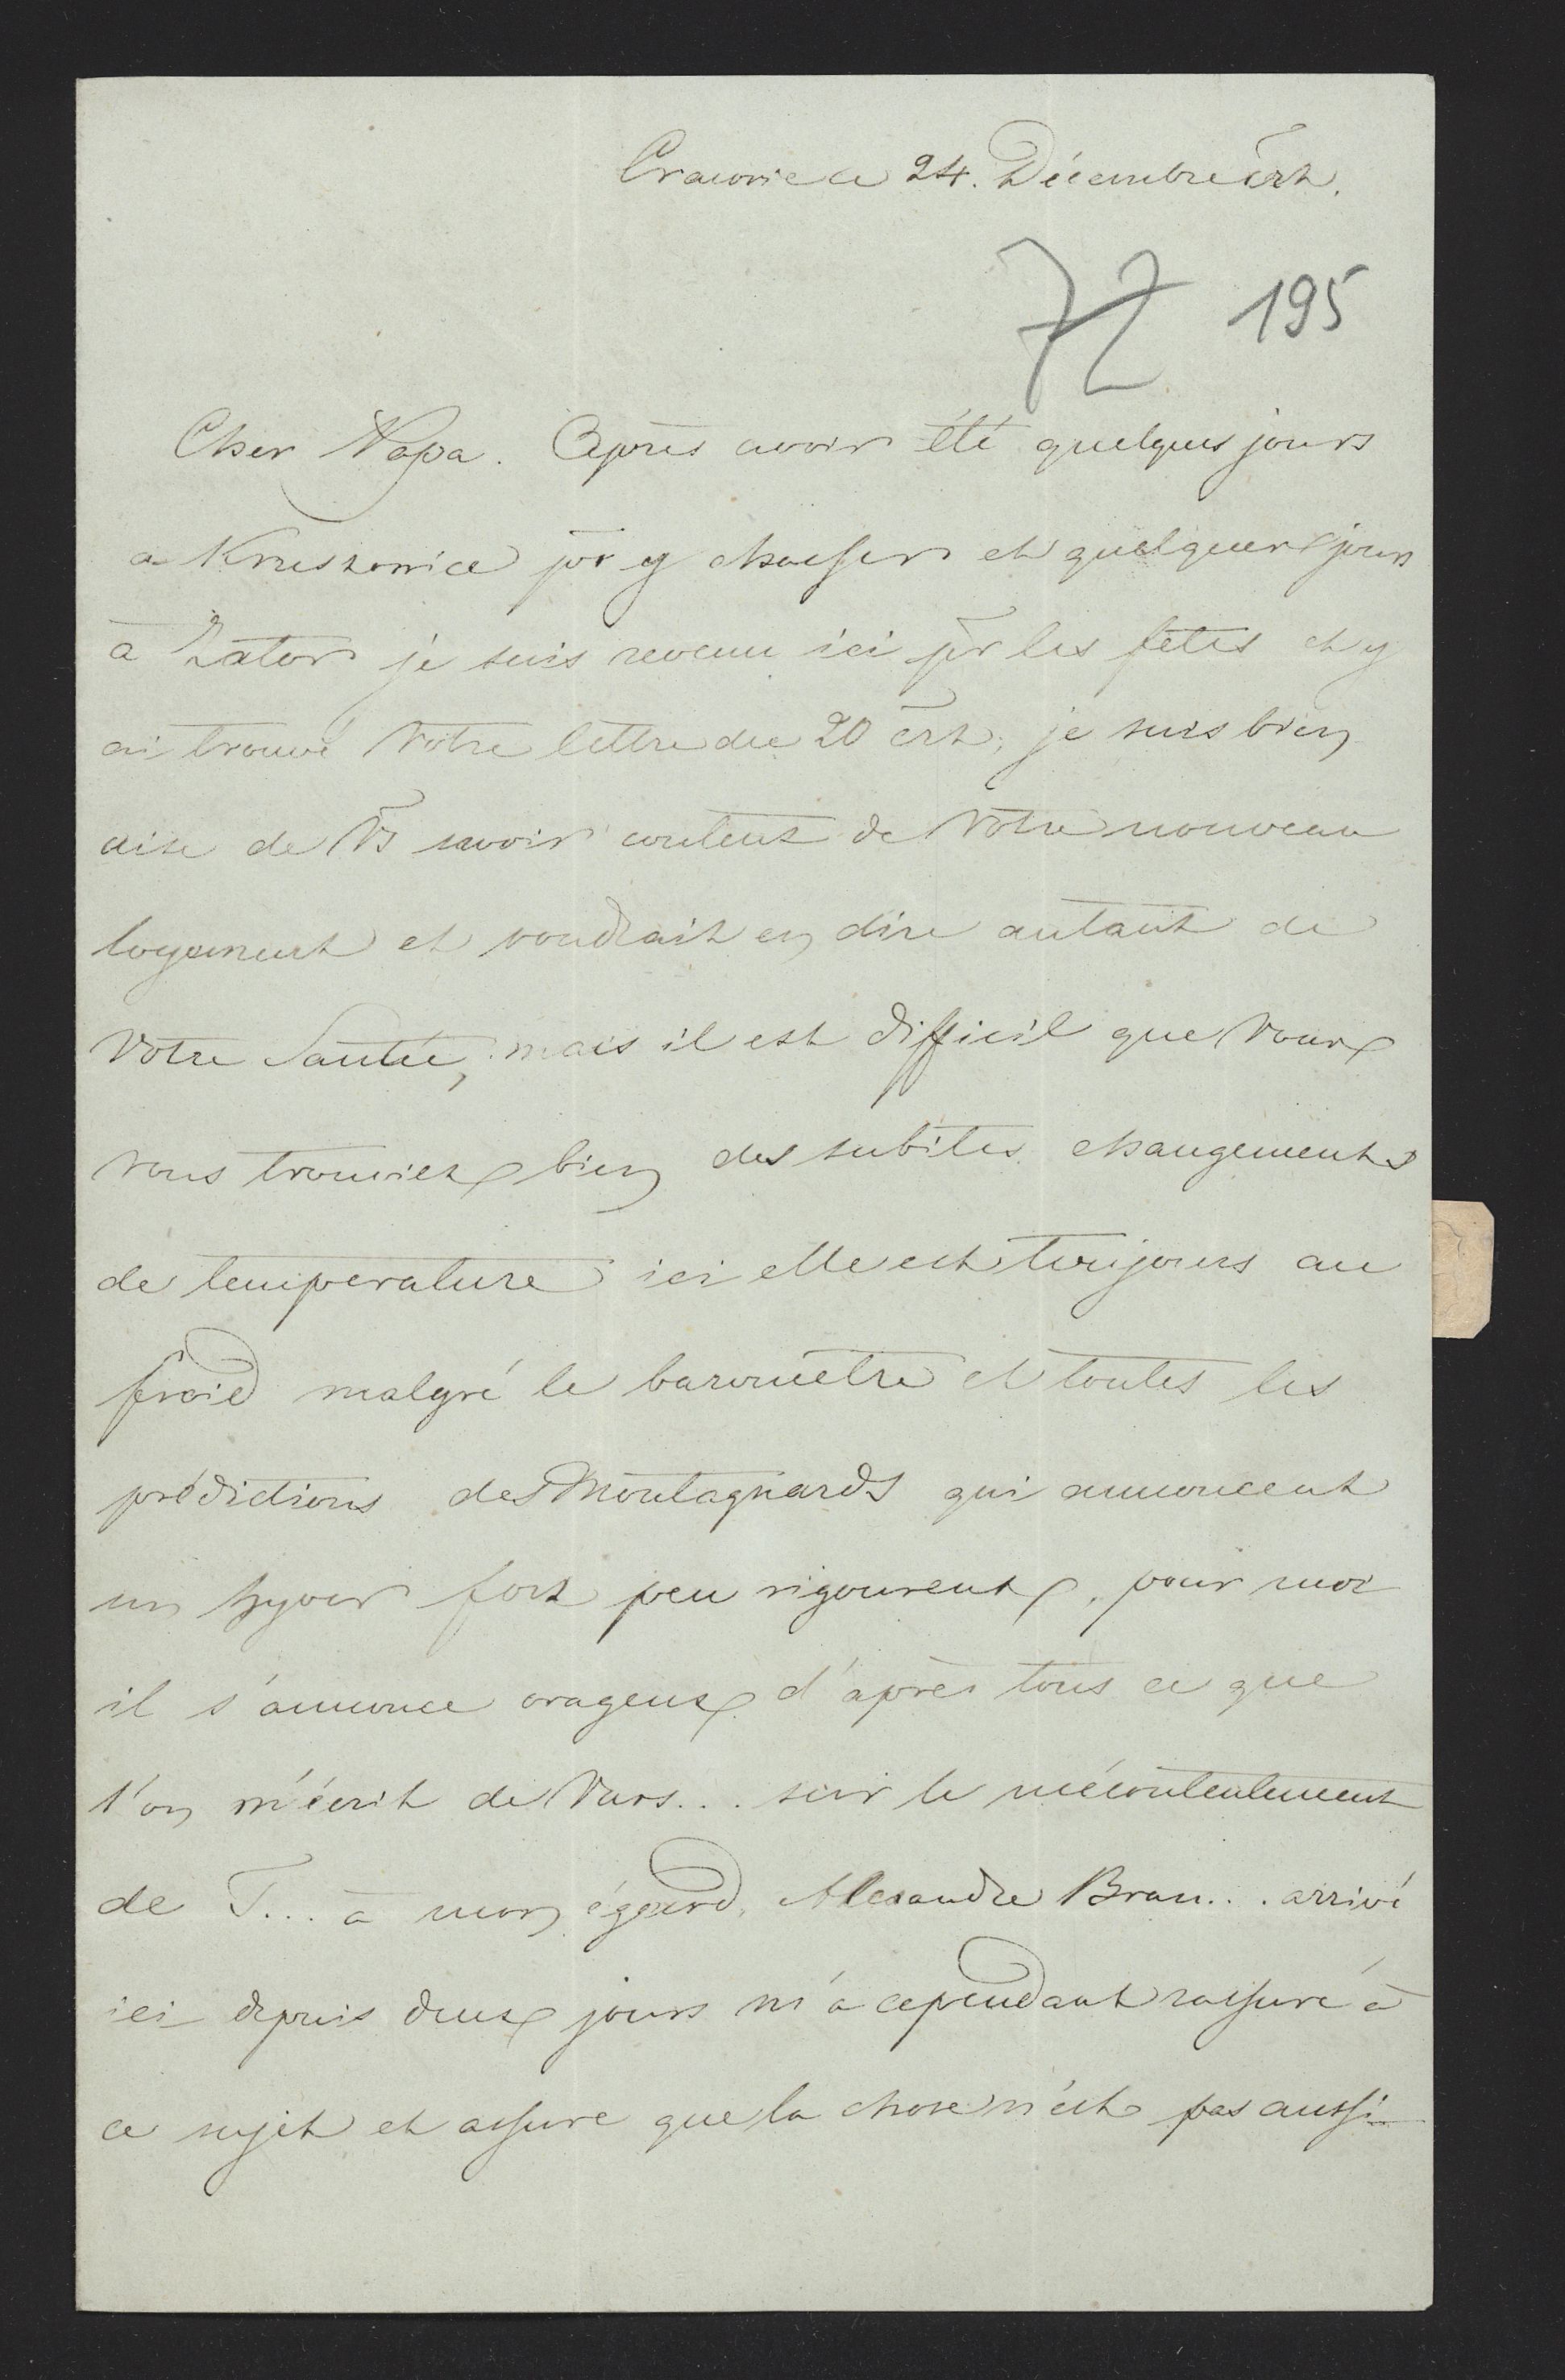 Cracovie ce 24. Décembre crt.
72 195
Cher Papa. Après avoir été quelques jours
a Kruszowice pr y chasser et quelques jours
à Zator je suis revenu ici pr les fêtes et y
ai trouvé Votre lettre du 20 crt, je suis bien
aise de Vs savoir content de Votre nouveau
logement et voudrait en dire autant de
Votre Santée, mais il est difficil que Vous
vous trouviez bien des subites changements
de temperature ici elle est toujours au
froid malgré le baromètre et toutes les
prédictions des Montagnards qui annoncent
un hyver fort peu rigoureux, pour moi
il s'annonce orageux d'après tous ce que
l'on m'écrit de Vars... sur le mécontentement
de T... à mon égard, Alexandre Bran... arrivé
ici depuis deux jours m'a cependant rassuré à
ce sujet et assure que la chose n'est pas aussi